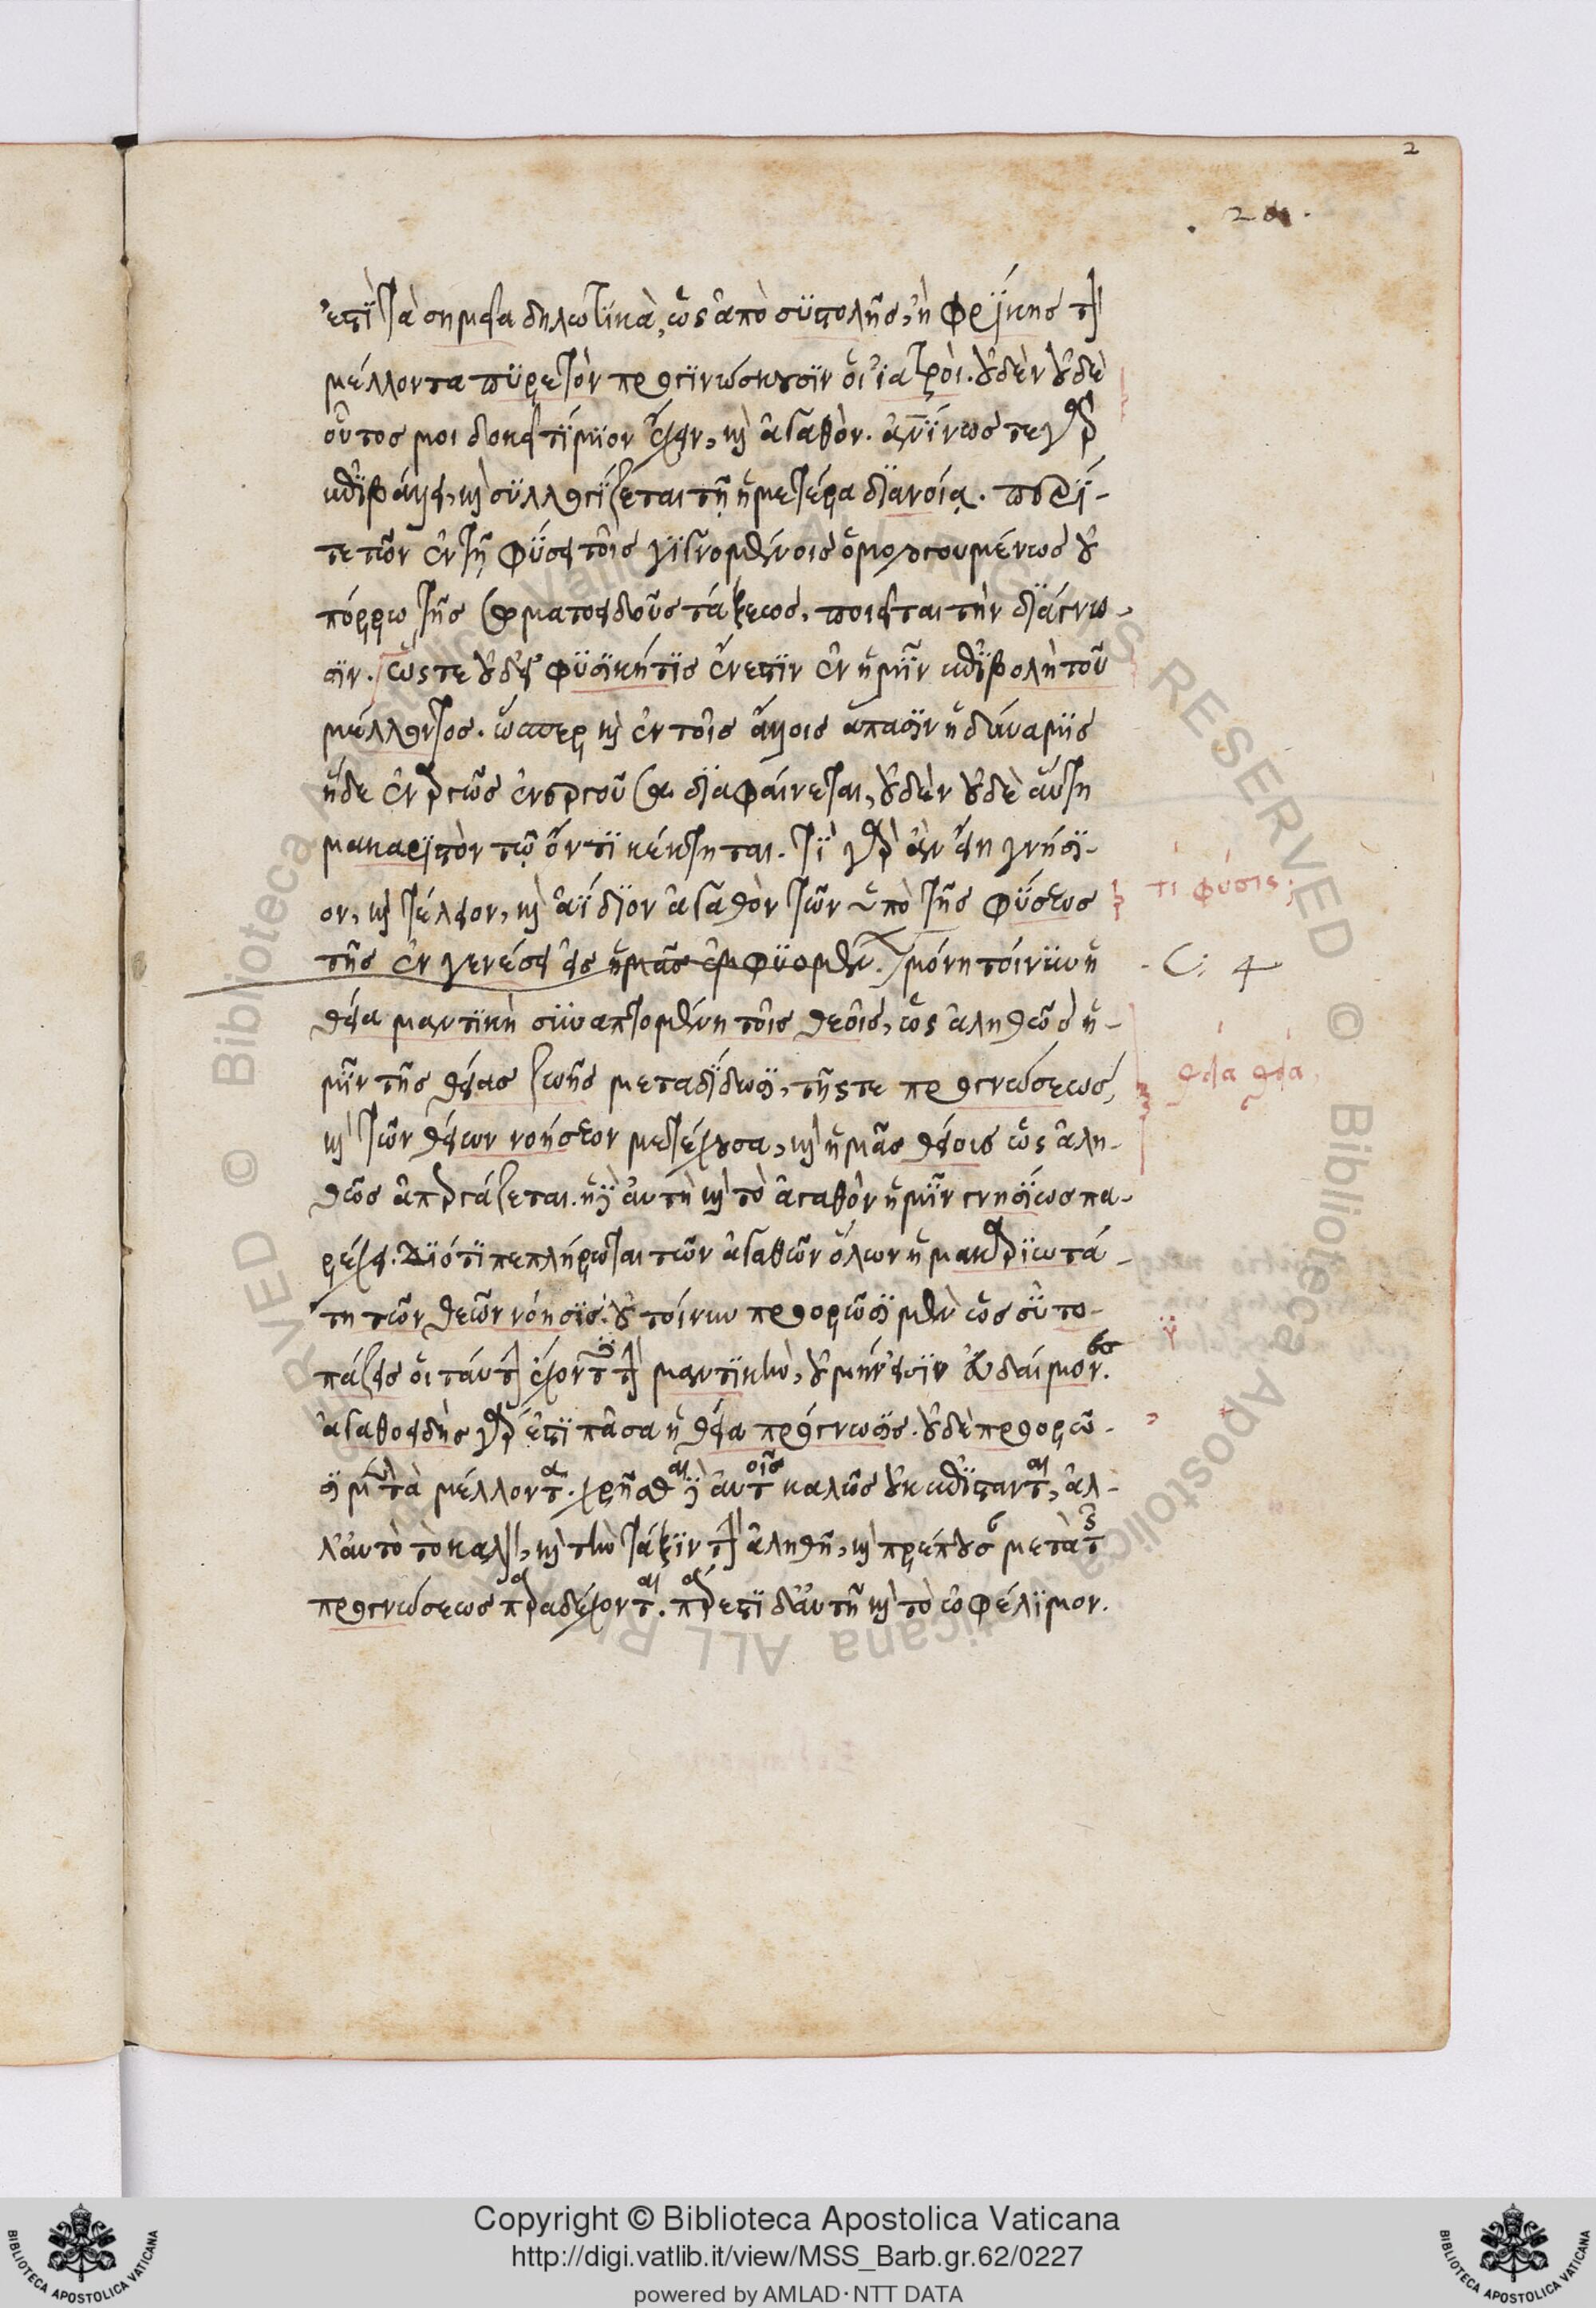 2
ἐστὶ τὰ σημεῖα δηλωτικὰ, ὡς ἀπὸ συστολῆς, ἢ φρίκης τὸν
μέλλοντα πυρετὸν προγινώσκουσιν οἱ ἰατροί. οὐδὲν οὐδὲ
οὗτος μοι δοκεῖ τίμιον ἔχειν, καὶ ἀγαθόν. ἀνθρωπίνως τε γὰρ
ἐπιβάλλει, καὶ συλλογίζεται τῇ ἡμετέρᾳ διανοίᾳ. περί-
τε τῶν ἐν τῇ φύσει τοῖς γιγνομένοις ὁμολογουμένως οὐ
πόρρω τῆς σωματοειδοῦς τάξεως, ποιεῖται τὴν διάγνω-
σιν. ὥστε οὐδ' εἰ φυσική τις ἔνεστιν ἐν ἡμῖν ἐπιβολὴ τοῦ
μέλλοντος. ὥσπερ καὶ ἐν τοῖς ἄλλοις ἅπασιν ἡ δύναμις
ἥδε ἐναργῶς ἐνεργοῦσα διαφαίνεται, οὐδὲν οὐδὲ αὕτη
μακαριστὸν τῷ ὄντι κέκτηται. τί γὰρ ἂν εἴη γνήσι-
ον, καὶ τέλειον, καὶ ἀΐδιον ἀγαθὸν τῶν ὑπὸ τῆς φύσεως
τῆς ἐν γενέσει εἰς ἡμᾶς ἐμφυομένων. μόνη τοίνυν ἡ
θεία μαντικὴ συναπτομένη τοῖς θεοῖς, ὡς ἀληθῶς ἡ-
μῖν τῆς θείας ζωῆς μεταδίδωσι, τῆς τε προγνώσεως,
καὶ τῶν θείων νοήσεων μετέχουσα, καὶ ἡμᾶς θείους ὡς ἀλη-
θῶς ἀπεργάζεται. ἡ δὲ αὐτὴ καὶ τὸ ἀγαθὸν ἡμῖν γνησίως πα-
ρέχει. διότι πεπλήρωται τῶν ἀγαθῶν ὅλων ἡ μακαριωτά-
τη τῶν θεῶν νόησις. οὐ τοίνυν προορῶσι μὲν ὡς σὺ το-
πάζεις οἱ ταύτην ἔχοντες τὴν μαντικὴν, οὐ μήν εἰσιν εὐδαίμονες.
ἀγαθοειδὴς γάρ ἐστι πᾶσα ἡ θεία πρόγνωσις. οὐδὲ προορῶ-
σι μὲν τὰ μέλλοντα. χρῆσθαι δὲ αὐτοῖς καλῶς οὐκ ἐπίστανται, ἀλ-
λ' αὐτὸ τὸ καλὸν, καὶ τὴν τάξιν τὴν ἀληθῆ, καὶ πρέπουσαν μετὰ τῆς
προγνώσεως παραδέχονται. πάρεστι δ' αὐτῇ καὶ τὸ ὠφέλιμον.
τί φύσις;
C: 4
θεία
Copyright © Biblioteca Apostolica Vaticana
http://digi.vatlib.it/view/MSS_Barb.gr.62/0227
powered by AMLAD·NTT DATA
BIBLIOTECA APOSTOLICA VATICANA
BIBLIOTECA APOSTOLICA VATICANA